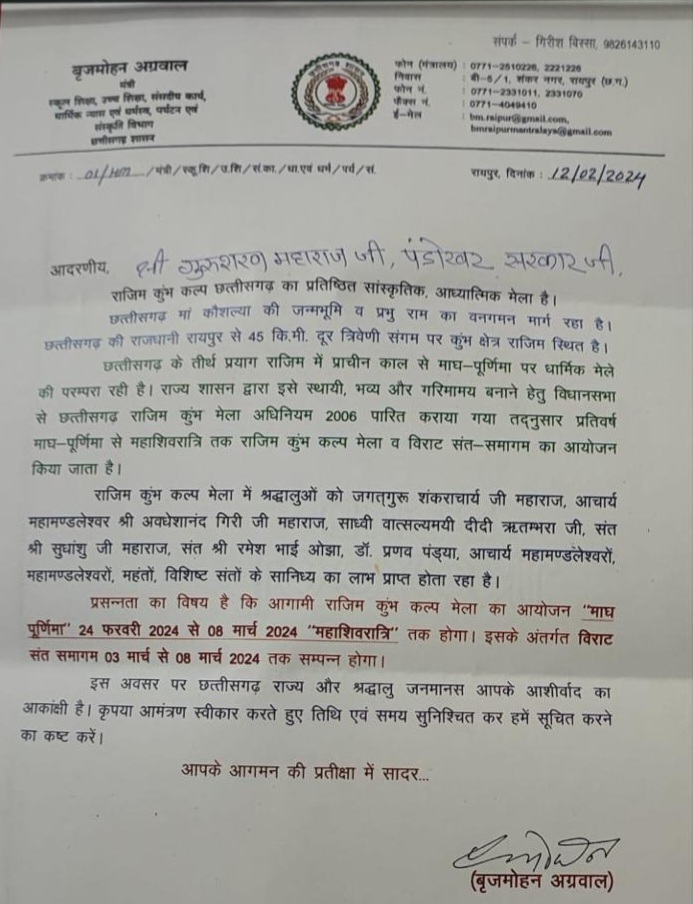 संपर्क – गिरीश बिस्सा, 9826143110
बृजमोहन अग्रवाल
मंत्री
स्कूल शिक्षा, उच्च शिक्षा, संसदीय कार्य,
धार्मिक न्यास एवं धर्मस्व, पर्यटन एवं
संस्कृति विभाग
छत्तीसगढ़ शासन
फोन (मंत्रालय) : 0771-2510226, 2221226
निवास : बी-5/1, शंकर नगर, रायपुर (छ.ग.)
फोन नं. : 0771-2331011, 2331070
फैक्स नं. : 0771-4049410
ई-मेल : bm.raipur@gmail.com,
bmraipurmantralaya@gmail.com
क्रमांक : 01/HM /मंत्री/स्कू.शि/उ.शि/सं.का./धा.एवं धर्म/पर्य/सं.
रायपुर, दिनांक : 12/02/2024
आदरणीय, श्री गुरुशरण महाराज जी, पंडोखर सरकार जी,
राजिम कुंभ कल्प छत्तीसगढ़ का प्रतिष्ठित सांस्कृतिक, आध्यात्मिक मेला है।
छत्तीसगढ़ मां कौशल्या की जन्मभूमि व प्रभु राम का वनगमन मार्ग रहा है।
छत्तीसगढ़ की राजधानी रायपुर से 45 कि.मी. दूर त्रिवेणी संगम पर कुंभ क्षेत्र राजिम स्थित है।
छत्तीसगढ़ के तीर्थ प्रयाग राजिम में प्राचीन काल से माघ–पूर्णिमा पर धार्मिक मेले
की परम्परा रही है। राज्य शासन द्वारा इसे स्थायी, भव्य और गरिमामय बनाने हेतु विधानसभा
से छत्तीसगढ़ राजिम कुंभ मेला अधिनियम 2006 पारित कराया गया तद्नुसार प्रतिवर्ष
माघ–पूर्णिमा से महाशिवरात्रि तक राजिम कुंभ कल्प मेला व विराट संत–समागम का आयोजन
किया जाता है।
राजिम कुंभ कल्प मेला में श्रद्धालुओं को जगत्गुरू शंकराचार्य जी महाराज, आचार्य
महामण्डलेश्वर श्री अवधेशानंद गिरी जी महाराज, साध्वी वात्सल्यमयी दीदी ऋतम्भरा जी, संत
श्री सुधांशु जी महाराज, संत श्री रमेश भाई ओझा, डॉ. प्रणव पंड्या, आचार्य महामण्डलेश्वरों,
महामण्डलेश्वरों, महंतों, विशिष्ट संतों के सानिध्य का लाभ प्राप्त होता रहा है।
प्रसन्नता का विषय है कि आगामी राजिम कुंभ कल्प मेला का आयोजन "माघ
पूर्णिमा" 24 फरवरी 2024 से 08 मार्च 2024 "महाशिवरात्रि" तक होगा। इसके अंतर्गत विराट
संत समागम 03 मार्च से 08 मार्च 2024 तक सम्पन्न होगा।
इस अवसर पर छत्तीसगढ़ राज्य और श्रद्धालु जनमानस आपके आशीर्वाद का
आकांक्षी है। कृपया आमंत्रण स्वीकार करते हुए तिथि एवं समय सुनिश्चित कर हमें सूचित करने
का कष्ट करें।
आपके आगमन की प्रतीक्षा में सादर...
(बृजमोहन अग्रवाल)